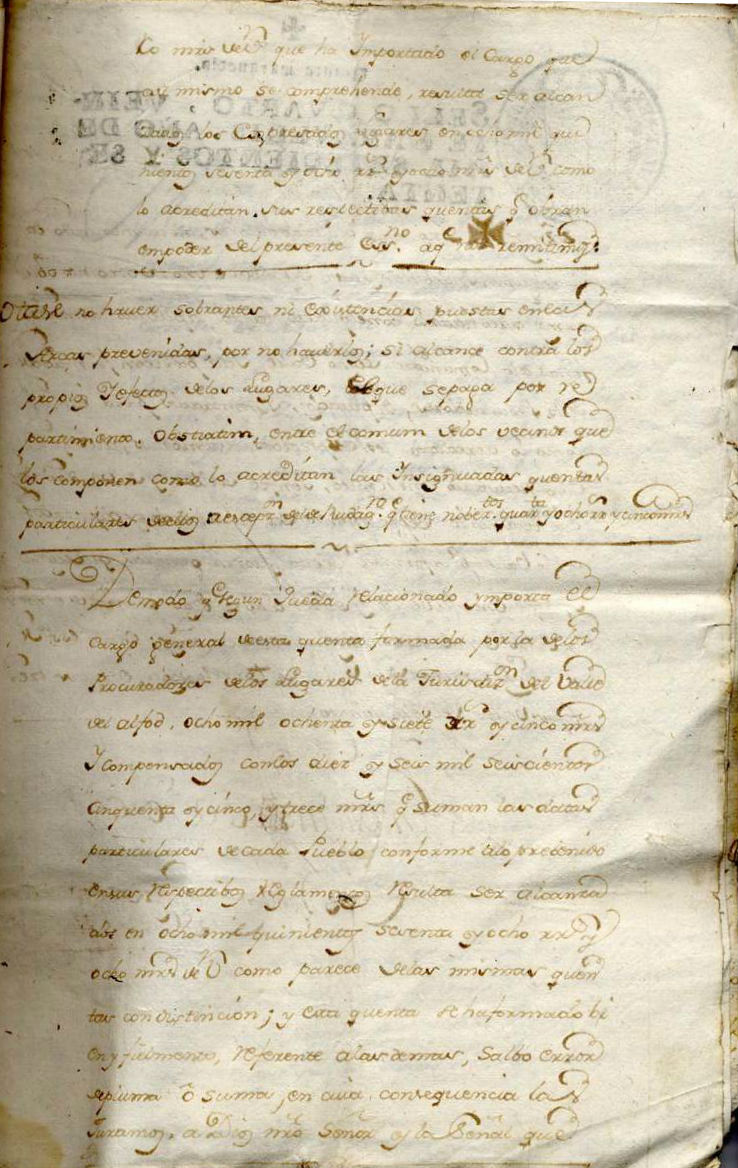 co mrs de Vn que ha Importado el Cargo que
asi mismo se comprehende, resulta ser alcan
zados los Expresados lugares en ocho mil qui
nientos sesenta y ocho rrs y ocho mrs de Vn como
lo acreditan sus respectibas quentas q obran
empoder del presente Essno. aq nos remitimos.
no haver sobrantes ni existencias puestas en las
Arcas prevenidas, por no haverlos; si alcance contra los
propios y efectos de los Lugares, el que se paga por re
partimiento, Obstiatim, entre el comun de los vecinos que
los componen como lo acreditan las Insignuadas quentas
particulares de ellos aescepn del de q tiene nobectos quarta y ocho rrs y cinco mrs
De modo q segun queda relacionado ymporta el
Cargo general de esta quenta formada por la de los
Procuradores de los Lugares de la Jurisdizn del Valle
de Alfod, ocho mil ochenta y siete rrs y cinco mrs
Y compensados con los diez y seis mil seiscientos
cinquenta y cinco, y trece mrs q suman las datas
particulares de cada Pueblo conforme alo prebenido
en sus respectibos reglamentos resulta ser alcanza
dos en ocho mil quinientos sesenta y ocho rrs y
ocho mrs de Vn como parece de las mismas quen
tas con distincion; y esta quenta se ha formado bi
en y fielmente, referente a las demas, salbo error
de pluma o suma, en cuia consequencia la
Juramos, a Dios nro Señor y la Señal que